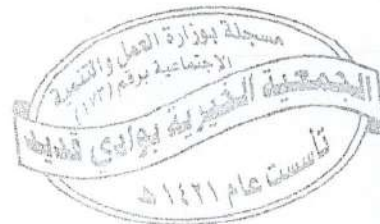 مسجلة بوزارة العمل والتنمية
الاجتماعية برقم (١٧٣)
الجمعية الخيرية بوادي قديد
تأسست عام ١٤٢١ هـ